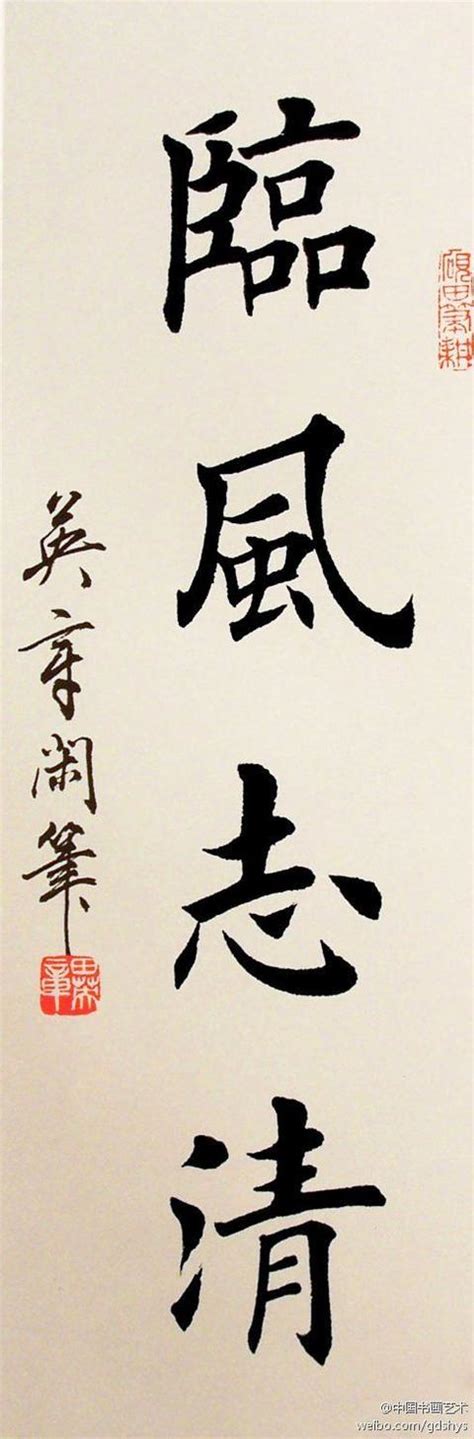 臨風志清
英章閑筆
硯田筆耕
田英章
@中国书画艺术
weibo.com/gdshys